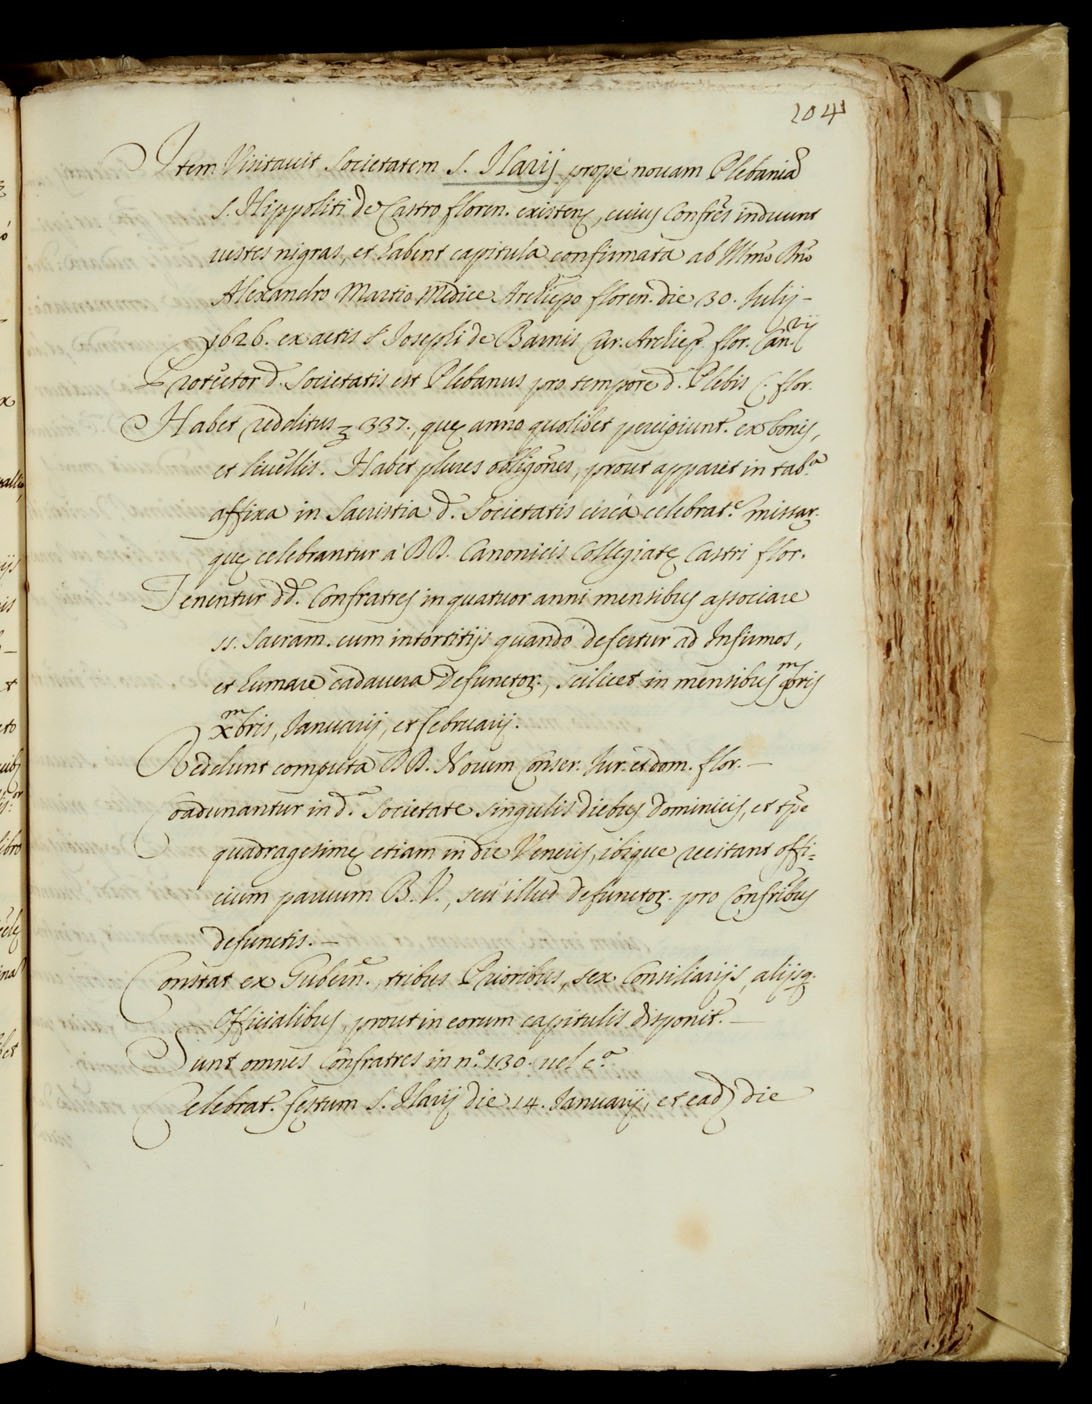 204
Item Visitauit Societatem S. Ilarij prope nouam Plebaniã
S. Hippoliti de Castro floren. existenẽ, cuius Confrẽs induunt
uestes nigras, et habent capitula confirmata ab Illmo Dño
Alexandro Martio Medice Archiepo floren. die 30. Julij -
1626. ex actis S. Josephi de Barnis Cur. Archiep. flor. Canrij
Protector d. Societatis est Plebanus pro tempore d. Plebis C. flor.
Habet redditus 337., quę anno quolibet percipiunt. ex bonis,
et liuellis. Habet plures obligões, prout apparet in tab.a
affixa in Sacristia d. Societatis circà celebrat.e missar.
quę celebrantur à DD. Canonicis Collegiatę Castri flor.
Tenentur dd. Confratres in quatuor anni mensibus associare
ss. Sacram. cum intortitijs quando defertur ad Infirmos,
et humare cadauera Defunctor., scilicet in mensibus 9mbris
xmbris, Januarij, et februarij.
Reddunt computa DD. Nouem Conser. Jur. et dom. flor. -
Coadunantur in d.a Societate singulis diebus Dominicis, et tp̃e
quadragesimę etiam in die Veneris, ibique recitant offi=
cium paruum B. V., seu illud defunctor. pro Confribus
defunctis. -
Constat ex Gubern.e, tribus Prioribus, sex Consiliarijs, alijsq.
Officialibus, prout in eorum capitulis disponit. -
Sunt omnes Confratres in n.o 130. uel c.a
Celebrat. festum S. Ilarij die 14. Januarij, et ead. die